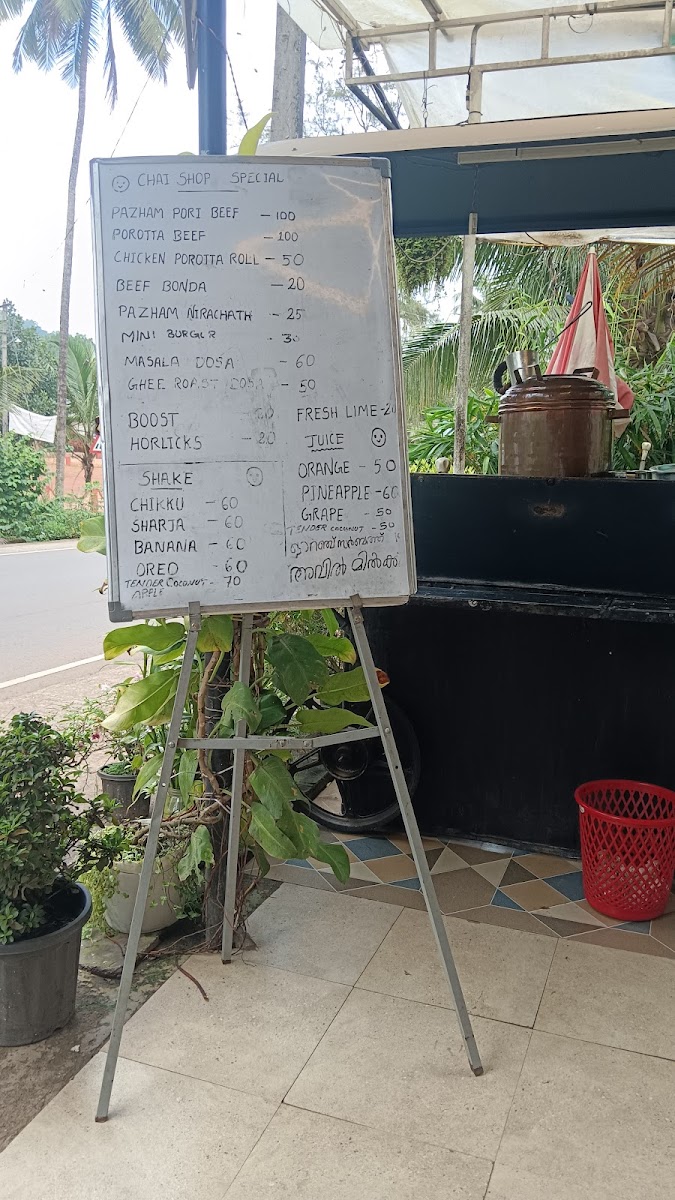 CHAI SHOP SPECIAL
PAZHAM PORI BEEF - 100
POROTTA BEEF - 100
CHICKEN POROTTA ROLL - 50
BEEF BONDA - 20
PAZHAM NIRACHATH - 25
MINI BURGER - 30
MASALA DOSA - 60
GHEE ROAST DOSA - 50
BOOST
HORLICKS - 20
SHAKE
CHIKKU - 60
SHARJA - 60
BANANA - 60
OREO - 60
TENDER COCONUT - 70
APPLE
FRESH LIME - 20
JUICE
ORANGE - 50
PINEAPPLE - 60
GRAPE - 50
TENDER COCONUT - 50
ഓറഞ്ച് സർബത്ത്
അവിൽ മിൽക്ക്